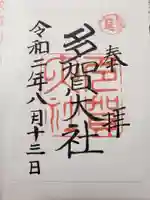 奉拝
多賀大社
令和二年八月十三日